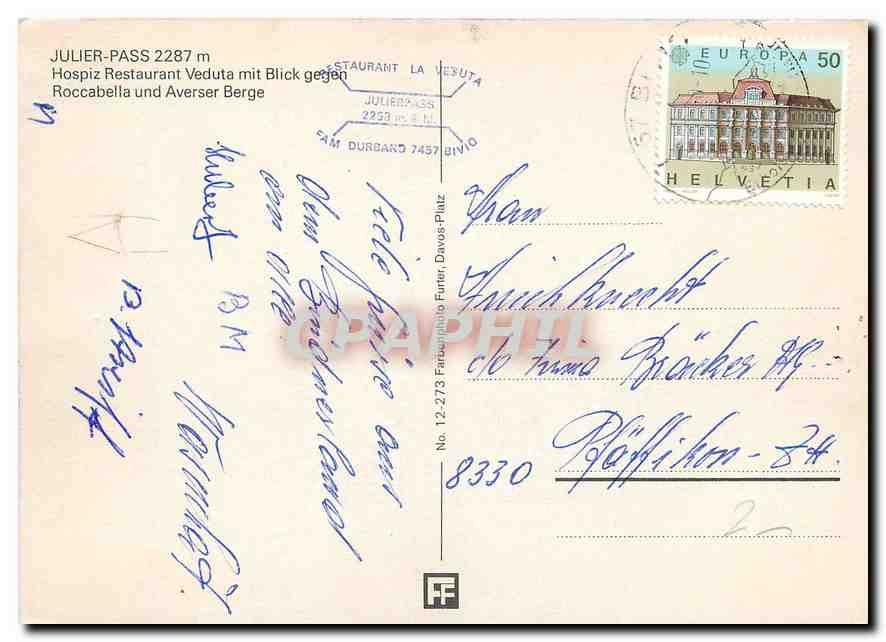 JULIER-PASS 2287 m
Hospiz Restaurant Veduta mit Blick gegen
Roccabella und Averser Berge
RESTAURANT LA VEDUTA
JULIERPASS
FAM DURBAND 7457 BIVIO
EUROPA 50
HELVETIA
Viele Grüsse aus
dem Bündnerland
an alle
Hubert BM
No. 12-273 Farbenphoto Furter, Davos-Platz
Frau
Knecht
c/o Firma Bräcker AG
8330 Pfäffikon - ZH.
CPAPHIL
FF